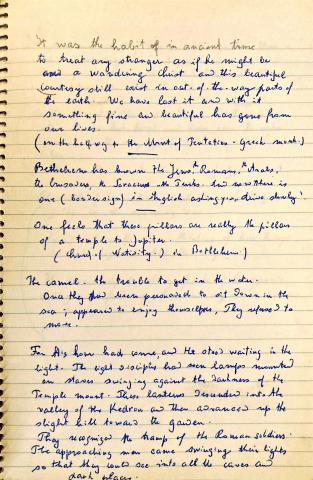 It was the habit of in ancient time
to treat any stranger as if he might be
and a wandering Christ and this beautiful
courtesy still exist in out-of-the-way parts of
the earth. We have lost it and with it
something fine and beautiful has gone from
our lives.
(on the half way to the Mount of Temtation - Greek monk.)
Bethlehem has known the Jews, the Romans, the Arabs,
the Crusaders, the Saracens, the Turks. And now there is
one (board sign) in English asking you "drive slowly"
One feels that these pillars are really the pillars
of a temple to Jupiter.
(Church of Nativity.) in Bethlehem)
The camel. the trouble to get in the water.
Once they had been persuaded to sit down in the
sea; appeared to enjoy themselves, They refused to
move.
For His hour had come, and He stood waiting in the
light. The eight disciples had seen lamps mounted
on staves swinging against the darkness of the
Temple mount. These lanterns descended into the
valley of the Kedron and then advanced up the
slight hill toward the garden.
They recognized the tramp of the Roman soldiers.
The approaching men came swinging their lights
so that they could see into all the caves and
dark places.